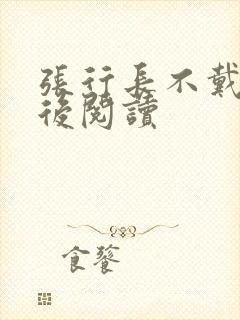 張行長不戴
後閱讀
食餮